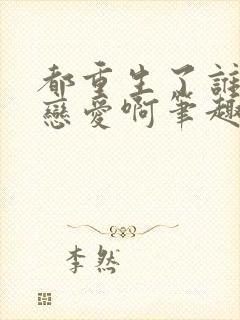 都重生了誰
戀愛啊筆趣
李然